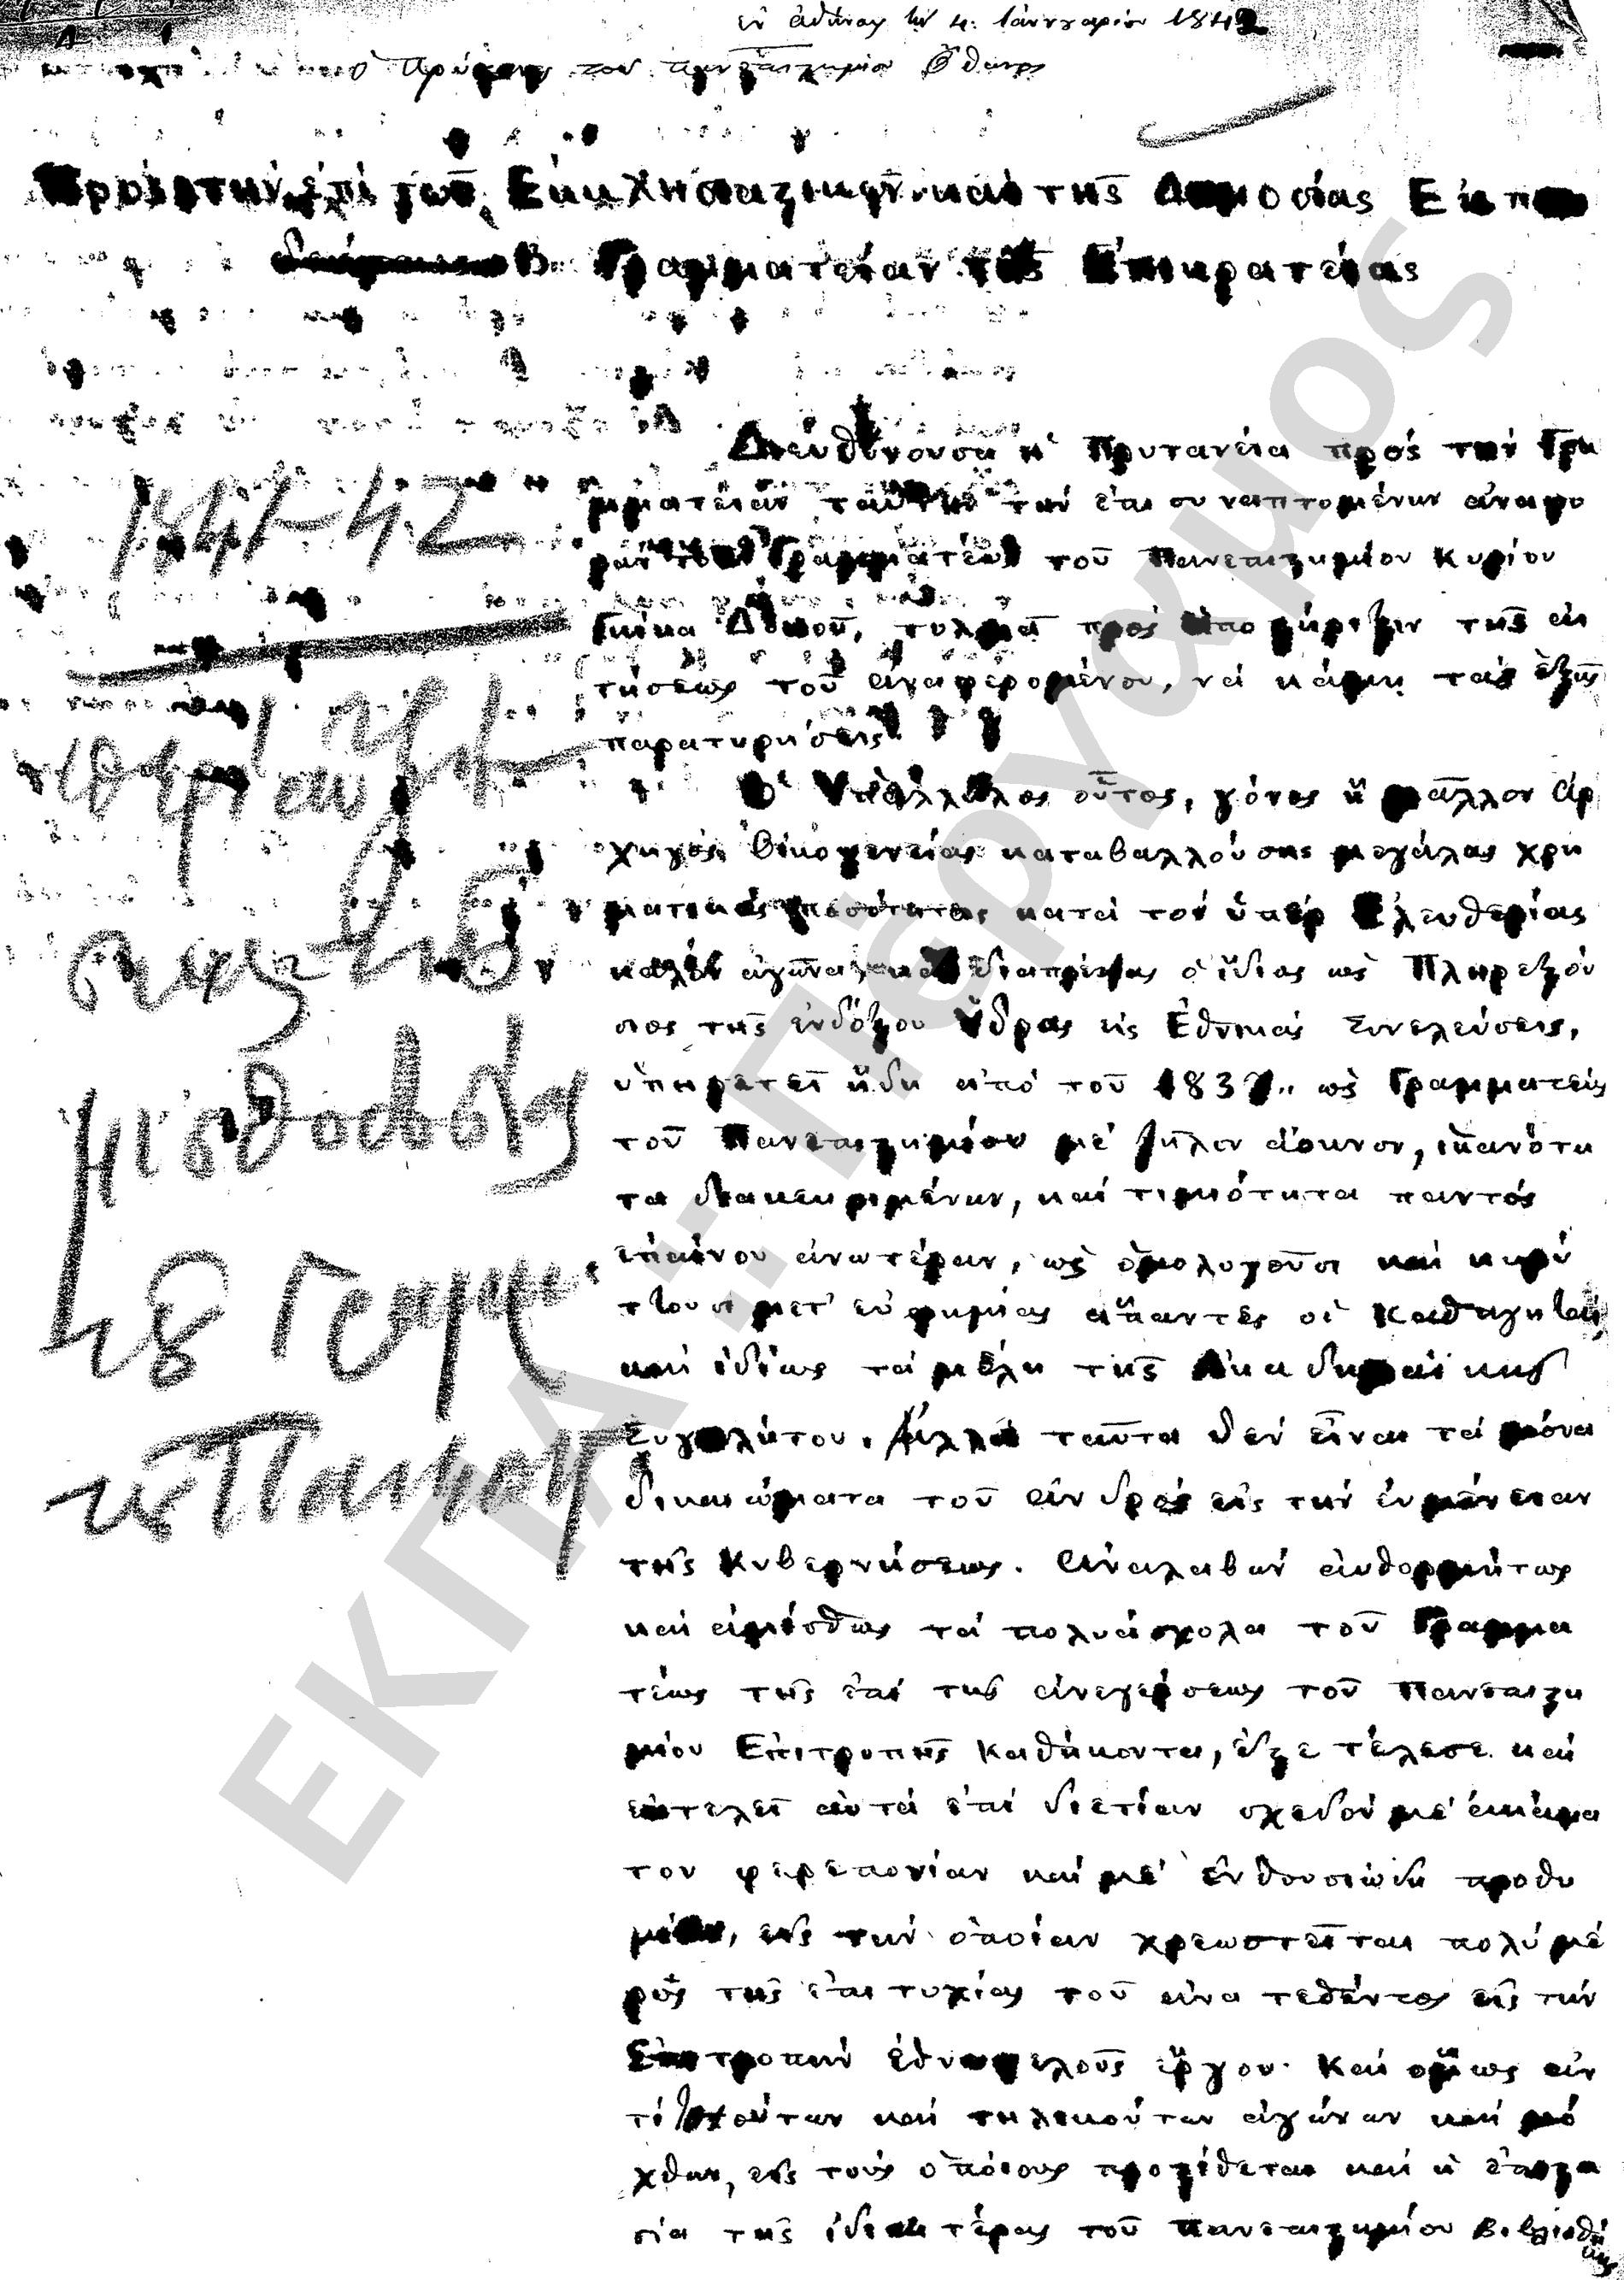 ἐν Ἀθήναις τῇ 4. Ἰαννουαρίου 1842
ὁ Πρύτανις τοῦ Πανεπιστημίου Ὄθωνος
Πρὸς τὴν ἐπὶ τῶν Ἐκκλησιαστικῶν καὶ τῆς Δημοσίας Ἐκπαι
δεύσεως Β. Γραμματείαν τῆς Ἐπικρατείας
Διευθύνουσα ἡ Πρυτανεία πρὸς τὴν Γρα
μματείαν ταύτην τὴν ἐπισυναπτομένην ἀναφο
ρὰν τοῦ Γραμματέως τοῦ Πανεπιστημίου Κυρίου
Γκίκα Δόκου, τολμᾷ πρὸς ὑποστήριξιν τῆς αἰ
τήσεως τοῦ ἀναφερομένου, νὰ κάμῃ τὰς ἑξῆς
παρατηρήσεις
Ὁ Ὑπάλληλος οὗτος, γόνος ἢ μᾶλλον ἀρ
χηγὸς οἰκογενείας καταβαλλούσης μεγάλας χρη
ματικὰς ποσότητας κατὰ τὸν ὑπὲρ Ἐλευθερίας
καλὸν ἀγῶνα, καὶ διαπρέψας ὁ ἴδιος ὡς Πληρεξού
σιος τῆς ἐνδόξου Ὕδρας εἰς Ἐθνικὰς Συνελεύσεις,
ὑπηρετεῖ ἤδη ἀπὸ τοῦ 1837.. ὡς Γραμματεὺς
τοῦ Πανεπιστημίου μὲ ζῆλον ἄοκνον, ἱκανότη
τα διακεκριμένην, καὶ τιμιότητα παντὸς
ἐπαίνου ἀνωτέραν, ὡς ὁμολογοῦσι καὶ κηρύ
ττουσι μετ' εὐφημίας ἅπαντες οἱ Καθηγηταὶ
καὶ ἰδίως τὰ μέλη τῆς Ἀκαδημαϊκῆς
Συγκλήτου. Ἀλλὰ ταῦτα δὲν εἶναι τὰ μόνα
δικαιώματα τοῦ ἀνδρὸς εἰς τὴν εὐμένειαν
τῆς Κυβερνήσεως. Ἀναλαβὼν αὐθορμήτως
καὶ ἀμίσθως τὰ πολυάσχολα τοῦ Γραμμα
τέως τῆς ἐπὶ τῆς ἀνεγέρσεως τοῦ Πανεπιστη
μίου Ἐπιτροπῆς καθήκοντα, ἐξετέλεσε καὶ
ἐκτελεῖ αὐτὰ ἐπὶ διετίαν σχεδὸν μὲ ἀκάμα
τον φερεπονίαν καὶ μὲ ἐνθουσιώδη προθυ
μίαν, εἰς τὴν ὁποίαν χρεωστεῖται πολὺ μέ
ρος τῆς ἐπιτυχίας τοῦ ἀνατεθέντος εἰς τὴν
Ἐπιτροπὴν ἐθνωφελοῦς ἔργου. Καὶ ὅμως ἀν
τὶ τοιούτων καὶ τηλικούτων ἀγώνων καὶ μό
χθων, εἰς τοὺς ὁποίους προστίθεται καὶ ἡ ἐπιστα
σία τῆς ἰδιαιτέρας τοῦ Πανεπιστημίου Βιβλιοθή
κης
1841-42
περὶ
μισθοδοσίας
τοῦ Γραμμ.
τοῦ Πανεπ
ΕΚΠΑ :: Πέργαμος